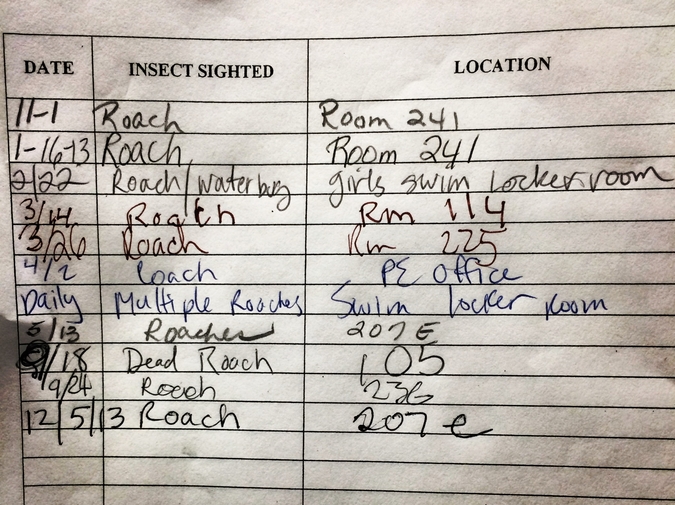 DATE INSECT SIGHTED LOCATION
11-1 Roach Room 241
1-16-13 Roach Room 241
2/22 Roach/waterbug girls swim locker room
3/14 Roach Rm 114
3/26 Roach Rm 225
4/2 Roach PE office
Daily Multiple Roaches Swim locker room
5/13 Roaches 207 E
9/18 Dead Roach 105
9/24 Roach 236
12/5/13 Roach 207 e